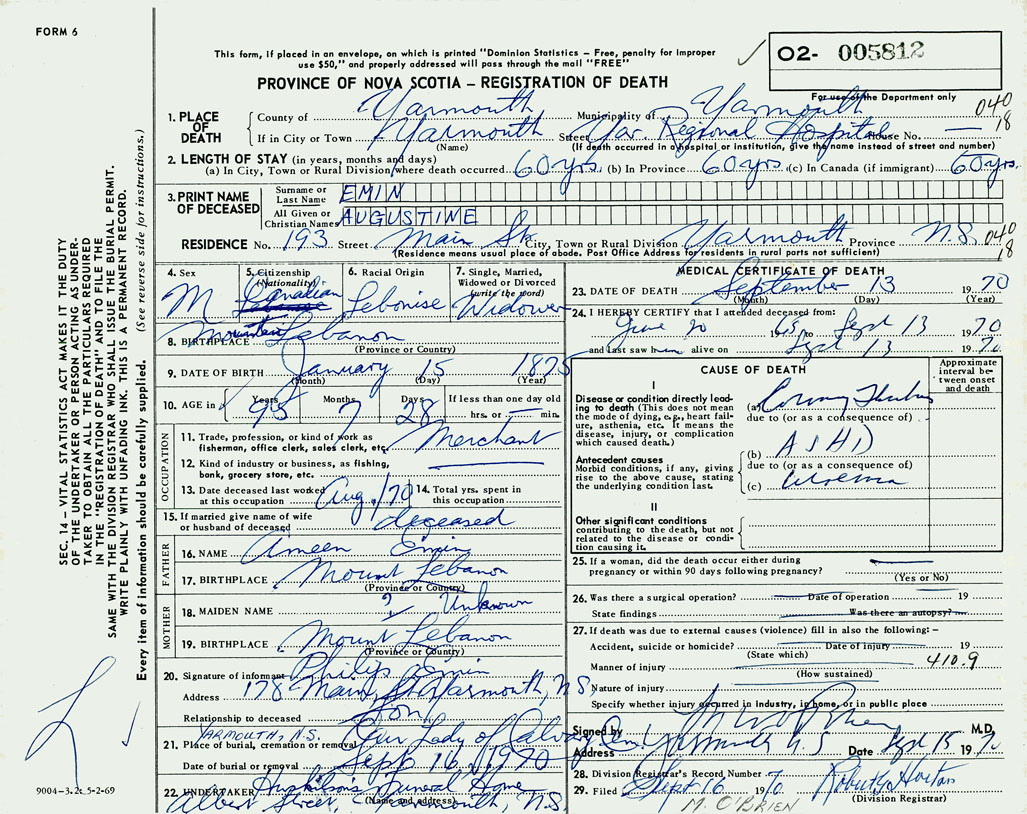 FORM 6
This form, if placed in an envelope, on which is printed "Dominion Statistics – Free, penalty for improper
use $50," and properly addressed will pass through the mail "FREE"
O2- 005812
PROVINCE OF NOVA SCOTIA – REGISTRATION OF DEATH
For use of the Department only
040
18
1. PLACE OF DEATH
County of Yarmouth Municipality of Yarmouth
If in City or Town Yarmouth Street Yar. Regional Hospital House No. —
(Name) (If death occurred in a hospital or institution, give the name instead of street and number)
2. LENGTH OF STAY (in years, months and days)
(a) In City, Town or Rural Division where death occurred 60 yrs. (b) In Province 60 yrs. (c) In Canada (if immigrant) 60 yrs.
3. PRINT NAME OF DECEASED
Surname or Last Name EMIN
All Given or Christian Names AUGUSTINE
RESIDENCE No. 193 Street Main St. City, Town or Rural Division Yarmouth Province N.S.
040
18
(Residence means usual place of abode. Post Office Address for residents in rural parts not sufficient)
4. Sex M
5. Citizenship (Nationality) Canadian
6. Racial Origin Lebonise
7. Single, Married, Widowed or Divorced (write the word) Widower
8. BIRTHPLACE Mounten Lebanon
(Province or Country)
9. DATE OF BIRTH January 15 1875
(Month) (Day) (Year)
10. AGE in Years 95 Months 7 Days 28 If less than one day old
hrs. or — min.
OCCUPATION
11. Trade, profession, or kind of work as
fisherman, office clerk, sales clerk, etc. Merchant
12. Kind of industry or business, as fishing,
bank, grocery store, etc. —
13. Date deceased last worked
at this occupation Aug./70
14. Total yrs. spent in
this occupation
15. If married give name of wife
or husband of deceased deceased
FATHER
16. NAME Ameen Emin
17. BIRTHPLACE Mount Lebanon
(Province or Country)
MOTHER
18. MAIDEN NAME ? Unknown
19. BIRTHPLACE Mount Lebanon
(Province or Country)
20. Signature of informant Philip Emin
Address 178 Main St. Yarmouth, N.S.
Relationship to deceased Son
YARMOUTH, N.S.
21. Place of burial, cremation or removal Our Lady of Calvary Cem.
Date of burial or removal Sept 16, 1970
22. UNDERTAKER Huskilson's Funeral Home
(Name and address)
Albert Street, Yarmouth, N.S.
MEDICAL CERTIFICATE OF DEATH
23. DATE OF DEATH September 13 1970
(Month) (Day) (Year)
24. I HEREBY CERTIFY that I attended deceased from:
June 20 1965 to Sept 13 1970
and last saw him alive on Sept 13 1970
CAUSE OF DEATH
Approximate interval between onset and death
I
Disease or condition directly leading to death (This does not mean the mode of dying, e.g., heart failure, asthenia, etc. It means the disease, injury, or complication which caused death.)
(a)
due to (or as a consequence of)
Antecedent causes
Morbid conditions, if any, giving rise to the above cause, stating the underlying condition last.
(b) ASHD
due to (or as a consequence of)
(c)
II
Other significant conditions
contributing to the death, but not related to the disease or condition causing it.
25. If a woman, did the death occur either during
pregnancy or within 90 days following pregnancy? —
(Yes or No)
26. Was there a surgical operation? Date of operation 19
State findings Was there an autopsy?
27. If death was due to external causes (violence) fill in also the following:–
Accident, suicide or homicide? Date of injury 19
(State which)
Manner of injury 410.9
(How sustained)
Nature of injury
Specify whether injury occurred in industry, in home, or in public place
Signed by M O'Brien M.D.
Address Yarmouth N S Date Sept 15 1970
28. Division Registrar's Record Number
29. Filed Sept 16 1970 Horton
(Division Registrar)
M. O'BRIEN
SEC. 14 – VITAL STATISTICS ACT MAKES IT THE DUTY
OF THE UNDERTAKER OR PERSON ACTING AS UNDERTAKER TO OBTAIN ALL THE PARTICULARS REQUIRED
IN THE "REGISTRATION OF DEATH" AND TO FILE THE
SAME WITH THE DIVISION REGISTRAR WHO SHALL ISSUE THE BURIAL PERMIT.
WRITE PLAINLY WITH UNFADING INK. THIS IS A PERMANENT RECORD.
Every item of information should be carefully supplied. (See reverse side for instructions.)
9004–3.2: 5-2-69